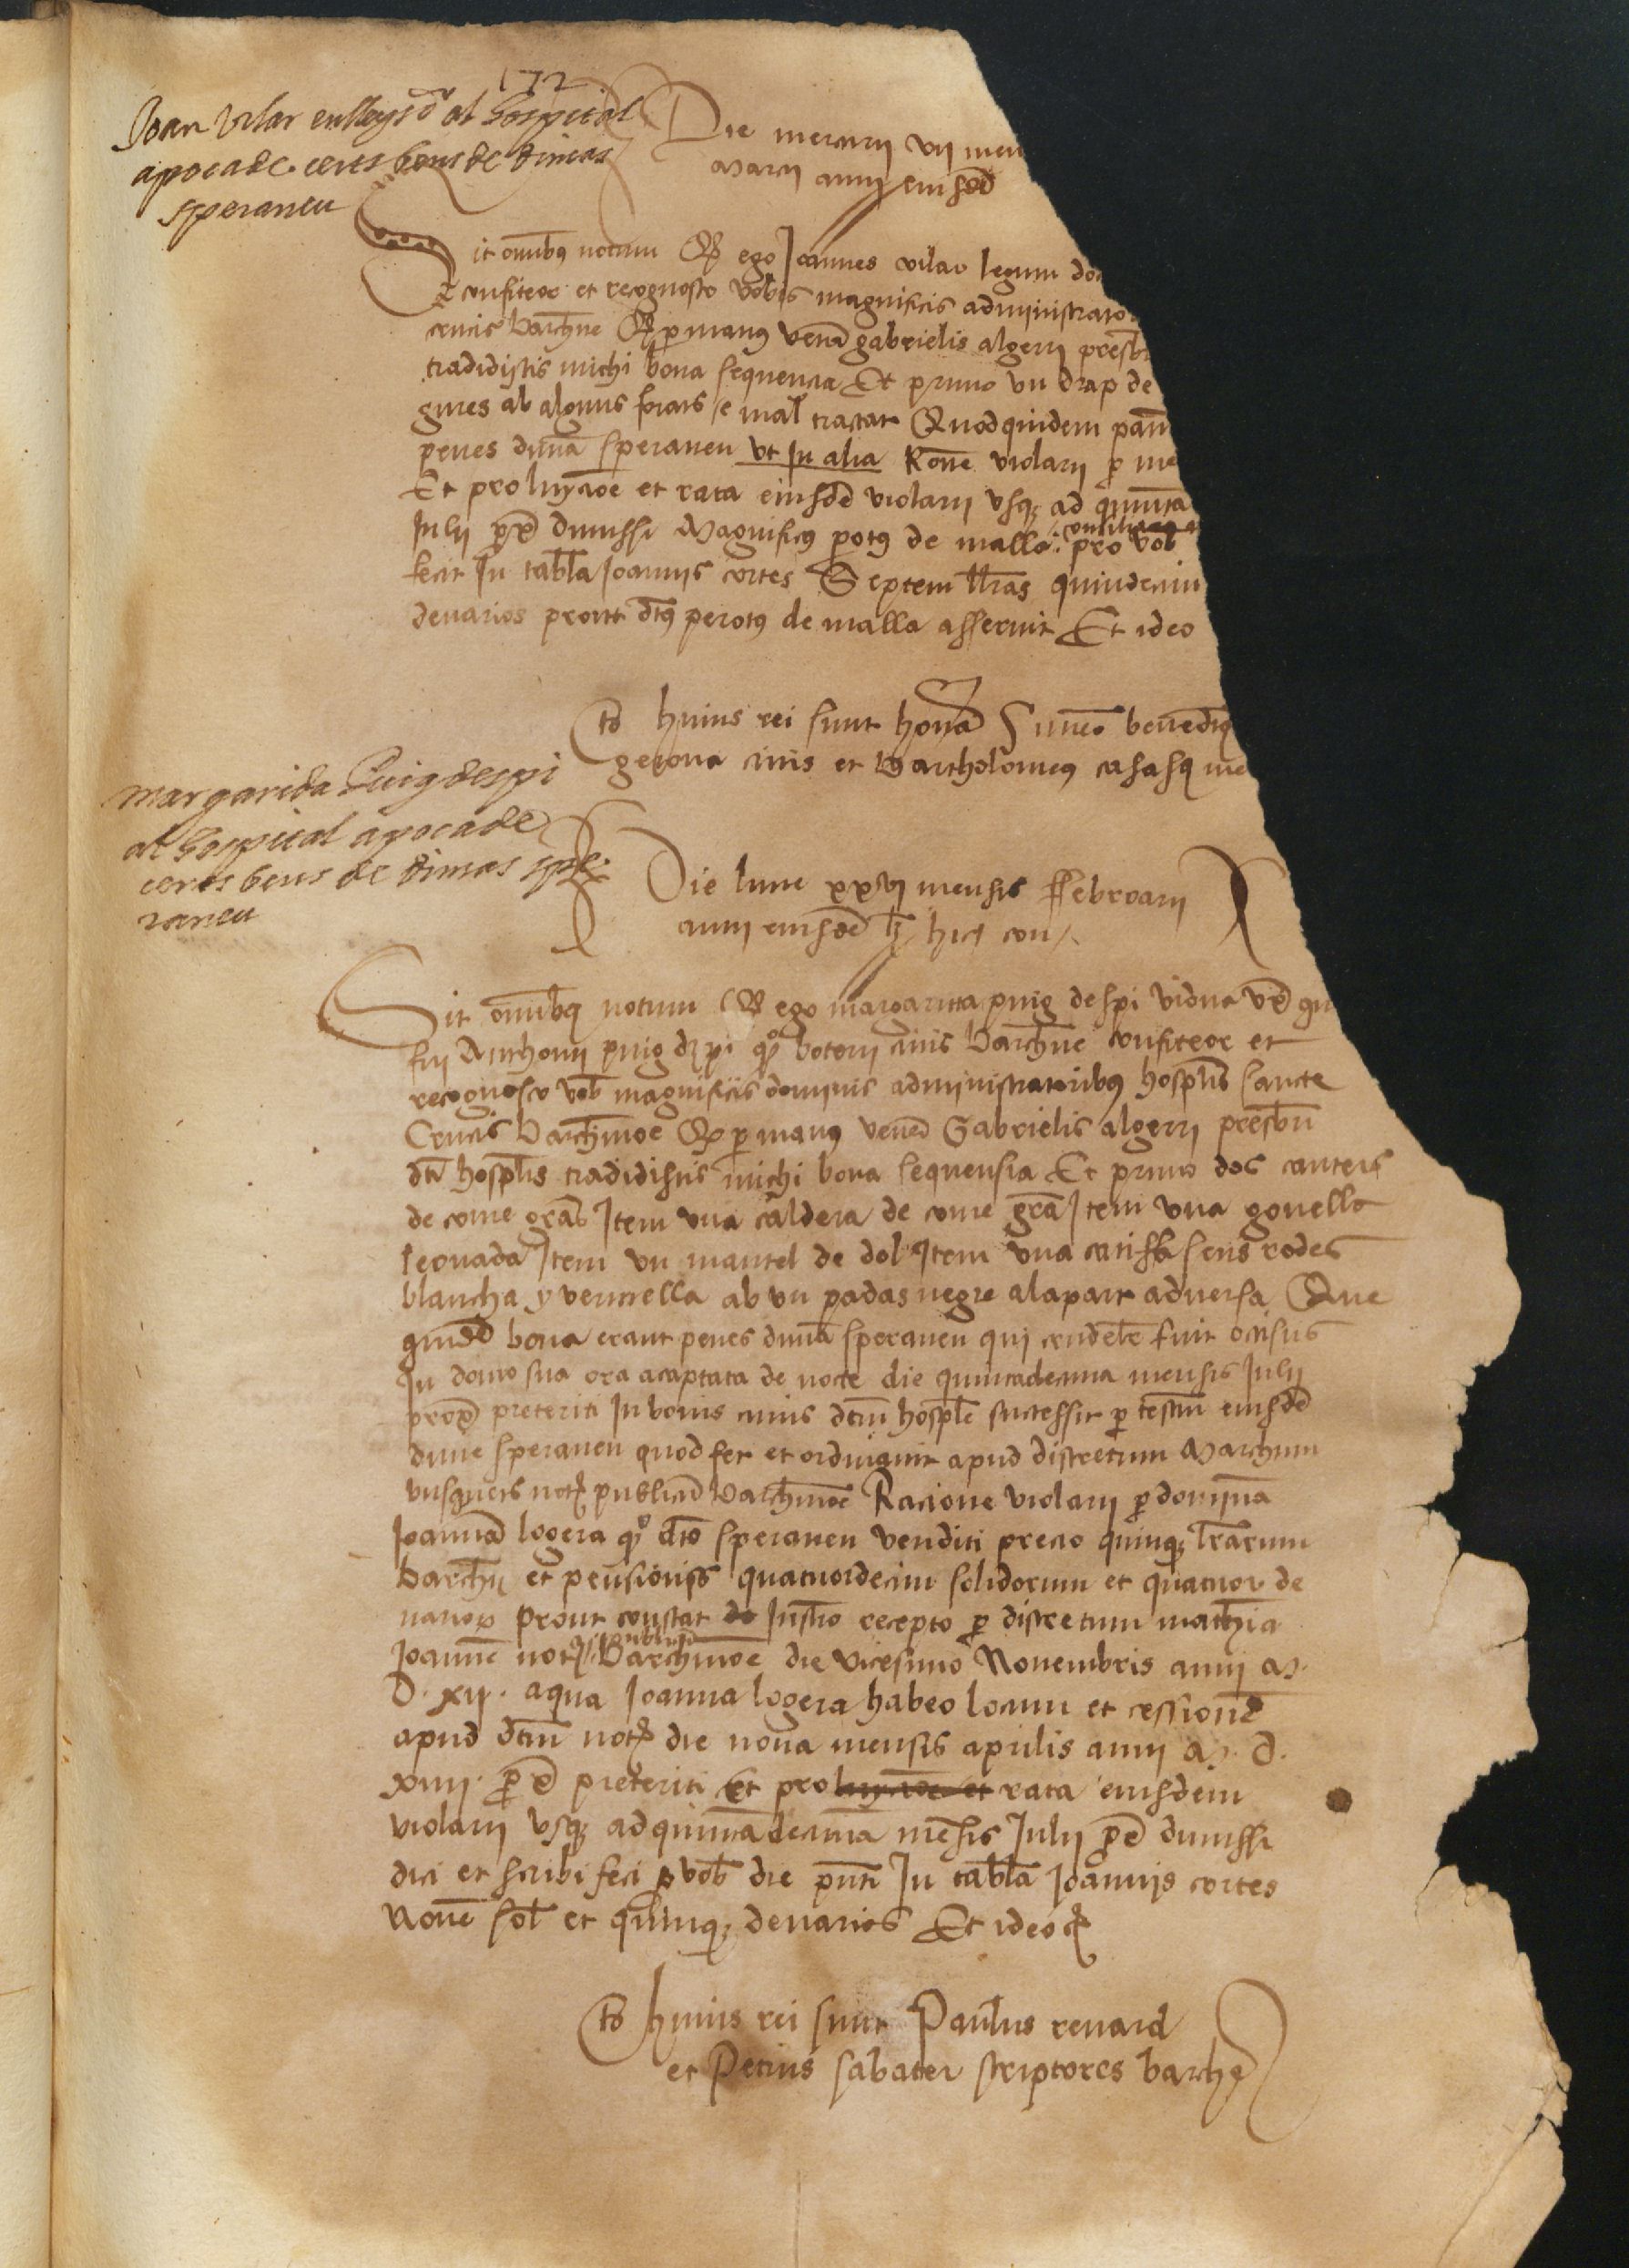 172
Joan vilar en lleys dor al hospital
apoca de certs bens de dimas
speraneu
Die mercurii vii men
Marcii anni eiusdē
Sit omībus notum Qd ego Joannes vilar legum doc
confiteor et recognosco vobis magnificis administrator
crucis barchne Qd p manus venā gabrielis algerii presbi
tradidistis michi bona sequencia Et primo vn drap de
gures ab alguns forats e mal tractat Quodquidem pan
penes dimā speraneu vt In alia Rone violarii p me
Et pro luycioe et rata eiusdē violarii vsq ad quinta
Julii pxē dimissi Magnificus perotus de malla pro vob
fecit In tabla Joannis cortes Septem llras quindecim
denarios prout dtus perotus de malla asseruit Et ideo
ts huius rei sunt honā Simeo benedictus
gerona civis et Bartholomeus casasq me
margarida Puigdespi
al hospital apoca de
certs bens de dimas spe
raneu
Die lune xxvi mensis ffebroarii
anni eiusdē
Sit omībus notum Qd ego margarita puig despi vidua vxē
fui Anthonii puig despi qo boterii civis barchne confiteor et
recognosco vob magnificis dominis administratoribus hosplis sancte
Crucis barchinoe Qd p manus venē Gabrielis algerii presbrī
dti hosplis tradidistis michi bona sequensia Et primo dos canters
de coure grās Item vna caldera de coure grā Item vna gonella
leonada Item vn mantel de dol Item vna catiffa sens rodes
blancha y vermella ab vn padas negre alapart adversa Que
quidē bona erant penes dimā speraneu qui crudelr fuit occisus
In domo sua ora acaptata de nocte die quintadecima mensis Julii
proxē preteriti In bonis cuius dtm hosple successit p testm eiusdē
dime speraneu quod fet et ordinavit apud discretum Marchum
busquets notm publicū barchinoe Racione violarii p dominā
Joannā logera qo dto speraneu venditi precio quinq lrarum
barchn et pensionis quatuordecim solidorum et quatuor de
narior prout constat de Instro recepto p discretum mathia
Joannē notm publicū Barchinoe die vicesimo Novembris anni M.
D. xii. aqua Joanna logera habeo locum et cessionē
apud dtm notm die nona mensis aprilis anni M. D.
xiiii. pxē preteriti Et pro luycioe et rata eiusdem
violarii vsq adquintadecima mēsis Julii pxē dimissi
dici et scribi feci p vob die pnti In tabla Joannis cortes
Novē sol et quinq denarios Et ideo
ts huius rei sunt Paulus renard
et Petrus sabater scriptores barchn